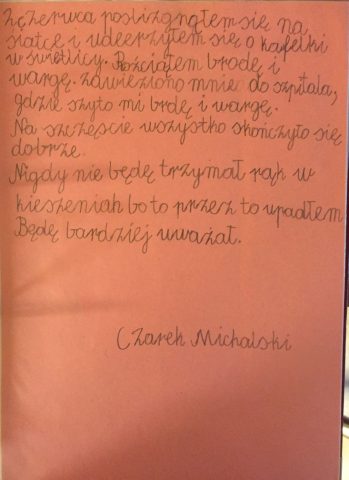 czerwca poślizgnąłem się na
siatce i uderzyłem się o kafelki
w świetlicy. Rozciąłem brodę i
wargę. Zawieziono mnie do szpitala,
gdzie szyto mi brdę i wargę.
Na szczęście wszystko skończyło się
dobrze.
Nigdy nie będę trzymał rąk w
kieszeniah bo to przez to upadłem
Będę bardziej uważał.
Czarek Michalski